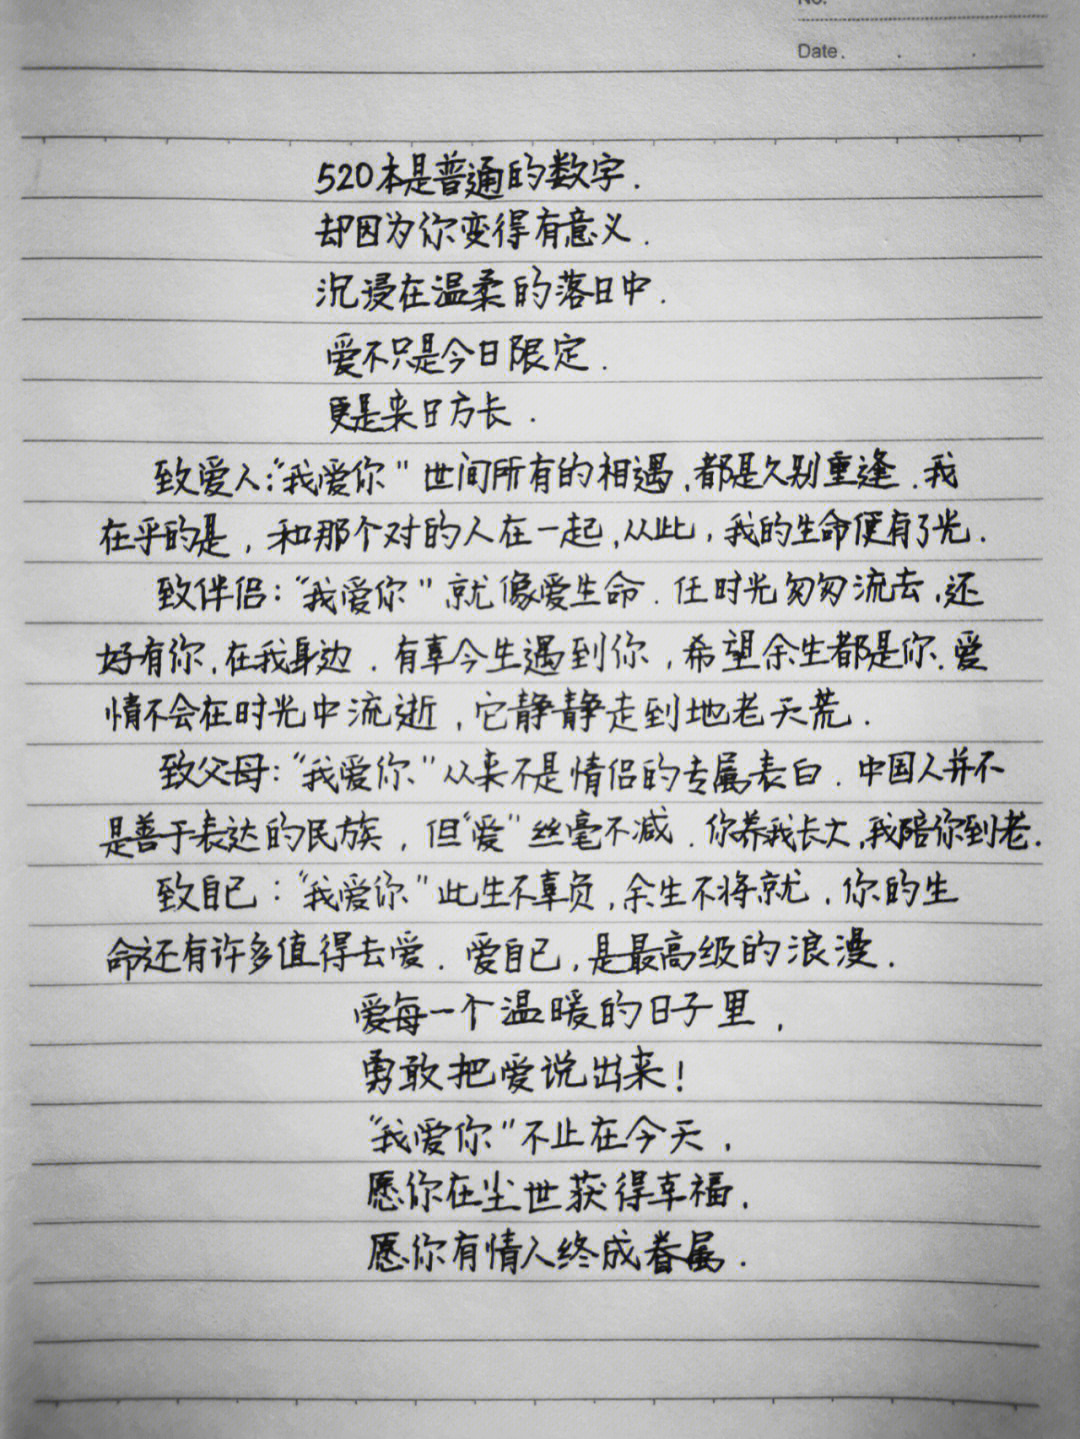 No.
Date.
520本是普通的数字.
却因为你变得有意义.
沉浸在温柔的落日中.
爱不只是今日限定.
更是来日方长.
致爱人:“我爱你”世间所有的相遇,都是久别重逢.我
在乎的是,和那个对的人在一起,从此,我的生命便有了光.
致伴侣:“我爱你”就像爱生命.任时光匆匆流去,还
好有你,在我身边.有幸今生遇到你,希望余生都是你.爱
情不会在时光中流逝,它静静走到地老天荒.
致父母:“我爱你”从来不是情侣的专属表白.中国人并不
是善于表达的民族,但“爱”丝毫不减.你养我长大,我陪你到老.
致自己:“我爱你”此生不辜负,余生不将就,你的生
命还有许多值得去爱.爱自己,是最高级的浪漫.
爱每一个温暖的日子里,
勇敢把爱说出来!
“我爱你”不止在今天,
愿你在尘世获得幸福.
愿你有情人终成眷属.